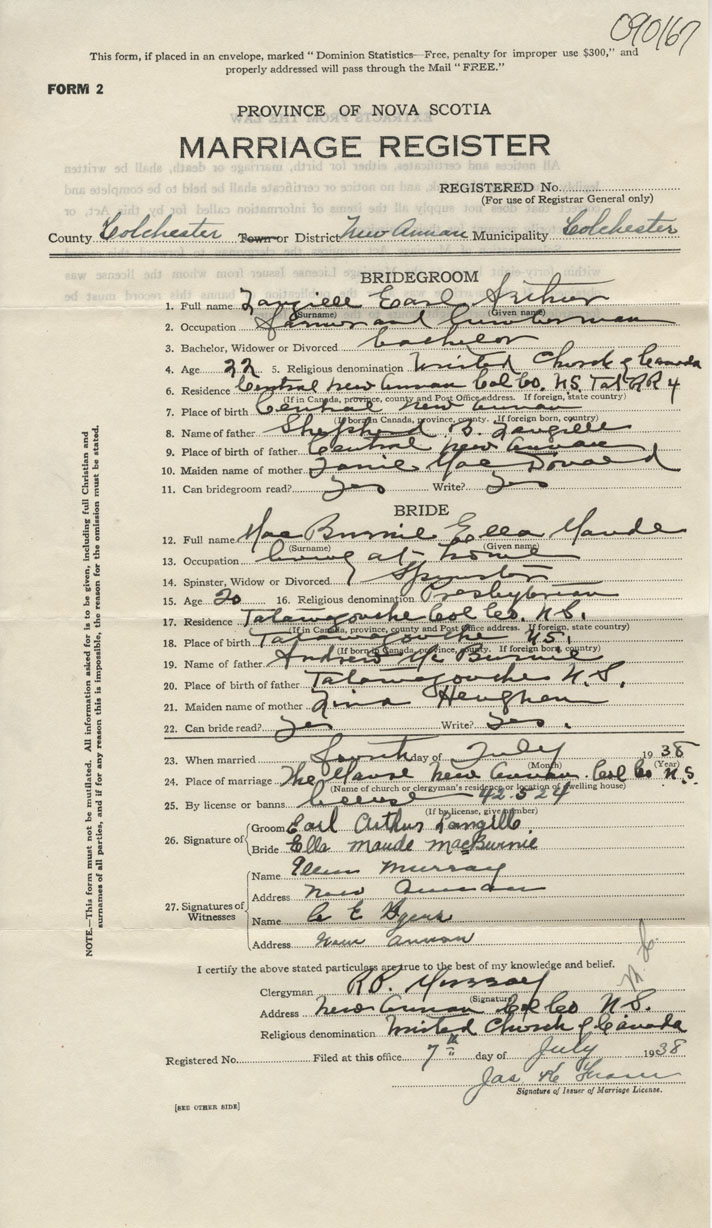 090167
This form, if placed in an envelope, marked "Dominion Statistics—Free, penalty for improper use $300," and
properly addressed will pass through the Mail "FREE."
FORM 2
PROVINCE OF NOVA SCOTIA
MARRIAGE REGISTER
REGISTERED No.
(For use of Registrar General only)
County Colchester Town or District New Annan Municipality Colchester
BRIDEGROOM
1. Full name Langille Earl Arthur
(Surname) (Given name)
2. Occupation Farmer and Lumberman
3. Bachelor, Widower or Divorced Bachelor
4. Age 22 5. Religious denomination United Church of Canada
6. Residence Central New Annan Col Co. N.S. Tat RR 4
(If in Canada, province, county and Post Office address. If foreign, state country)
7. Place of birth Central New Annan
(If born in Canada, province, county. If foreign born, country)
8. Name of father Shepherd B. Langille
9. Place of birth of father Central New Annan
10. Maiden name of mother Janie MacDonald
11. Can bridegroom read? Yes Write? Yes
BRIDE
12. Full name MacBurnie Ella Maude
(Surname) (Given name)
13. Occupation living at home
14. Spinster, Widow or Divorced Spinster
15. Age 20 16. Religious denomination Presbyterian
17. Residence Tatamagouche Col Co. N.S.
(If in Canada, province, county and Post Office address. If foreign, state country)
18. Place of birth Tatamagouche N.S.
(If born in Canada, province, county. If foreign born, country)
19. Name of father Andrew Mc Burnie
20. Place of birth of father Tatamagouche N.S.
21. Maiden name of mother
22. Can bride read? Yes Write? Yes.
23. When married fourth day of July 1938
(Month) (Year)
24. Place of marriage The Manse New Annan Col Co N.S.
(Name of church or clergyman's residence or location of dwelling house)
25. By license or banns license 42524
(If by license, give number)
26. Signature of
Groom Earl Arthur Langille
Bride Ella Maude MacBurnie
27. Signatures of Witnesses
Name Murray
Address New Annan
Name C E Byers
Address New Annan
I certify the above stated particulars are true to the best of my knowledge and belief.
Clergyman R.B. Murray
(Signature)
Address New Annan Col Co N.S.
Religious denomination United Church of Canada
Registered No. Filed at this office 7th day of July 1938
Signature of Issuer of Marriage License.
[SEE OTHER SIDE]
NOTE.—This form must not be mutilated. All information asked for is to be given, including full Christian and
surnames of all parties, and if for any reason this is impossible, the reason for the omission must be stated.